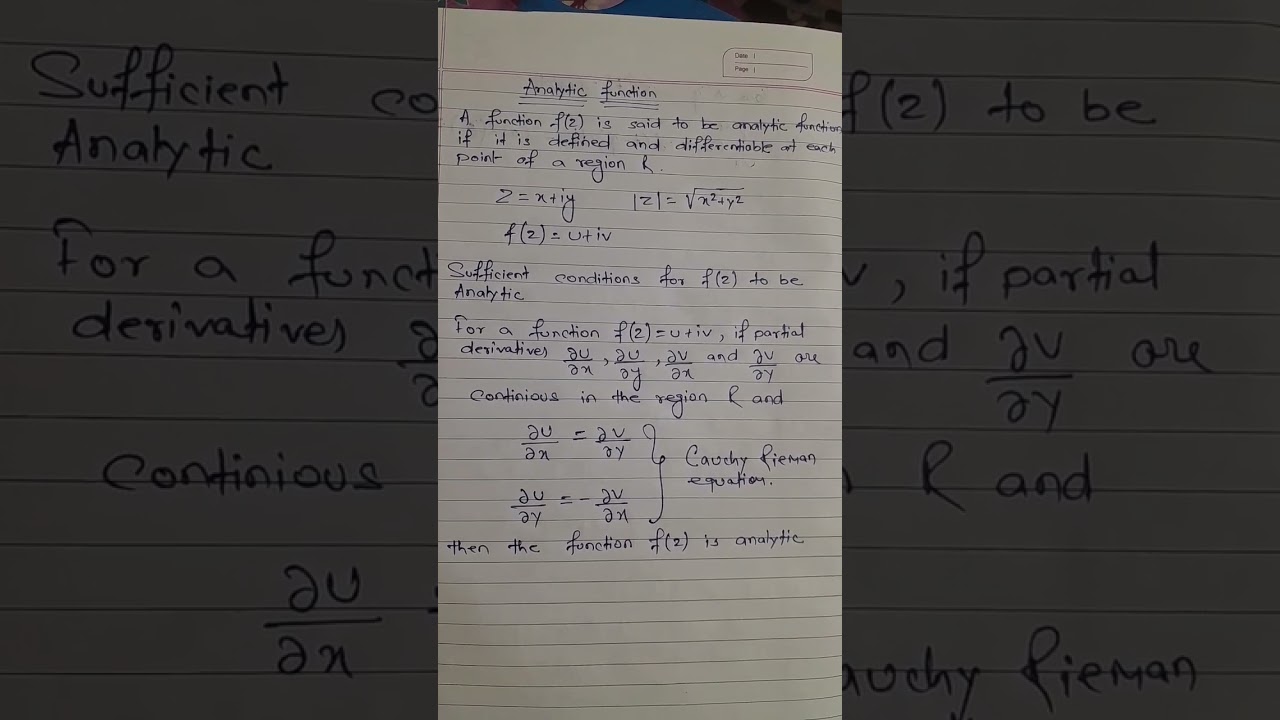 Date :
Page :
Analytic function
A function f(z) is said to be analytic function
if it is defined and differentiable at each
point of a region R.
z = x+iy |z| = √x²+y²
f(z) = u+iv
Sufficient conditions for f(z) to be
Analytic
For a function f(z) = u+iv, if partial
derivatives ∂u/∂x, ∂u/∂y, ∂v/∂x and ∂v/∂y are
continious in the region R and
∂u/∂x = ∂v/∂y
Cauchy Rieman
equation.
∂u/∂y = -∂v/∂x
then the function f(z) is analytic